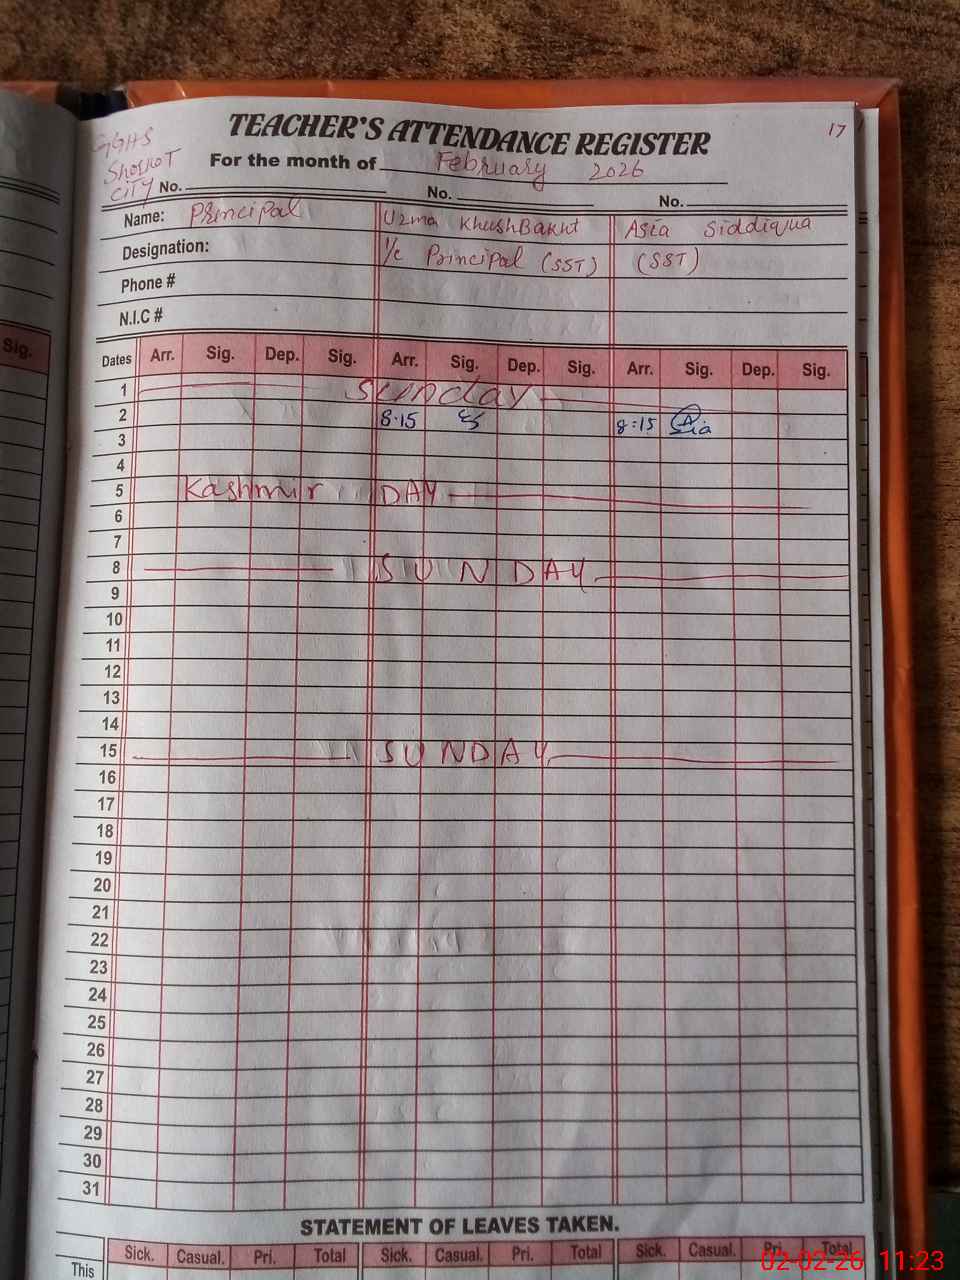 17
TEACHER'S ATTENDANCE REGISTER
GGHS
Shorkot
City
For the month of February 2026
No. No. No.
Name: Principal Uzma KhushBakht Asia Siddiqua
Designation: I/c Principal (SST) (SST)
Phone #
N.I.C #
Sig.
Dates Arr. Sig. Dep. Sig. Arr. Sig. Dep. Sig. Arr. Sig. Dep. Sig.
1 Sunday
2 8:15 8:15 Asia
3
4
5 Kashmir DAY
6
7
8 SUNDAY
9
10
11
12
13
14
15 SUNDAY
16
17
18
19
20
21
22
23
24
25
26
27
28
29
30
31
STATEMENT OF LEAVES TAKEN.
Sick. Casual. Pri. Total Sick. Casual. Pri. Total Sick. Casual. Pri. Total
This
02-02-26 11:23